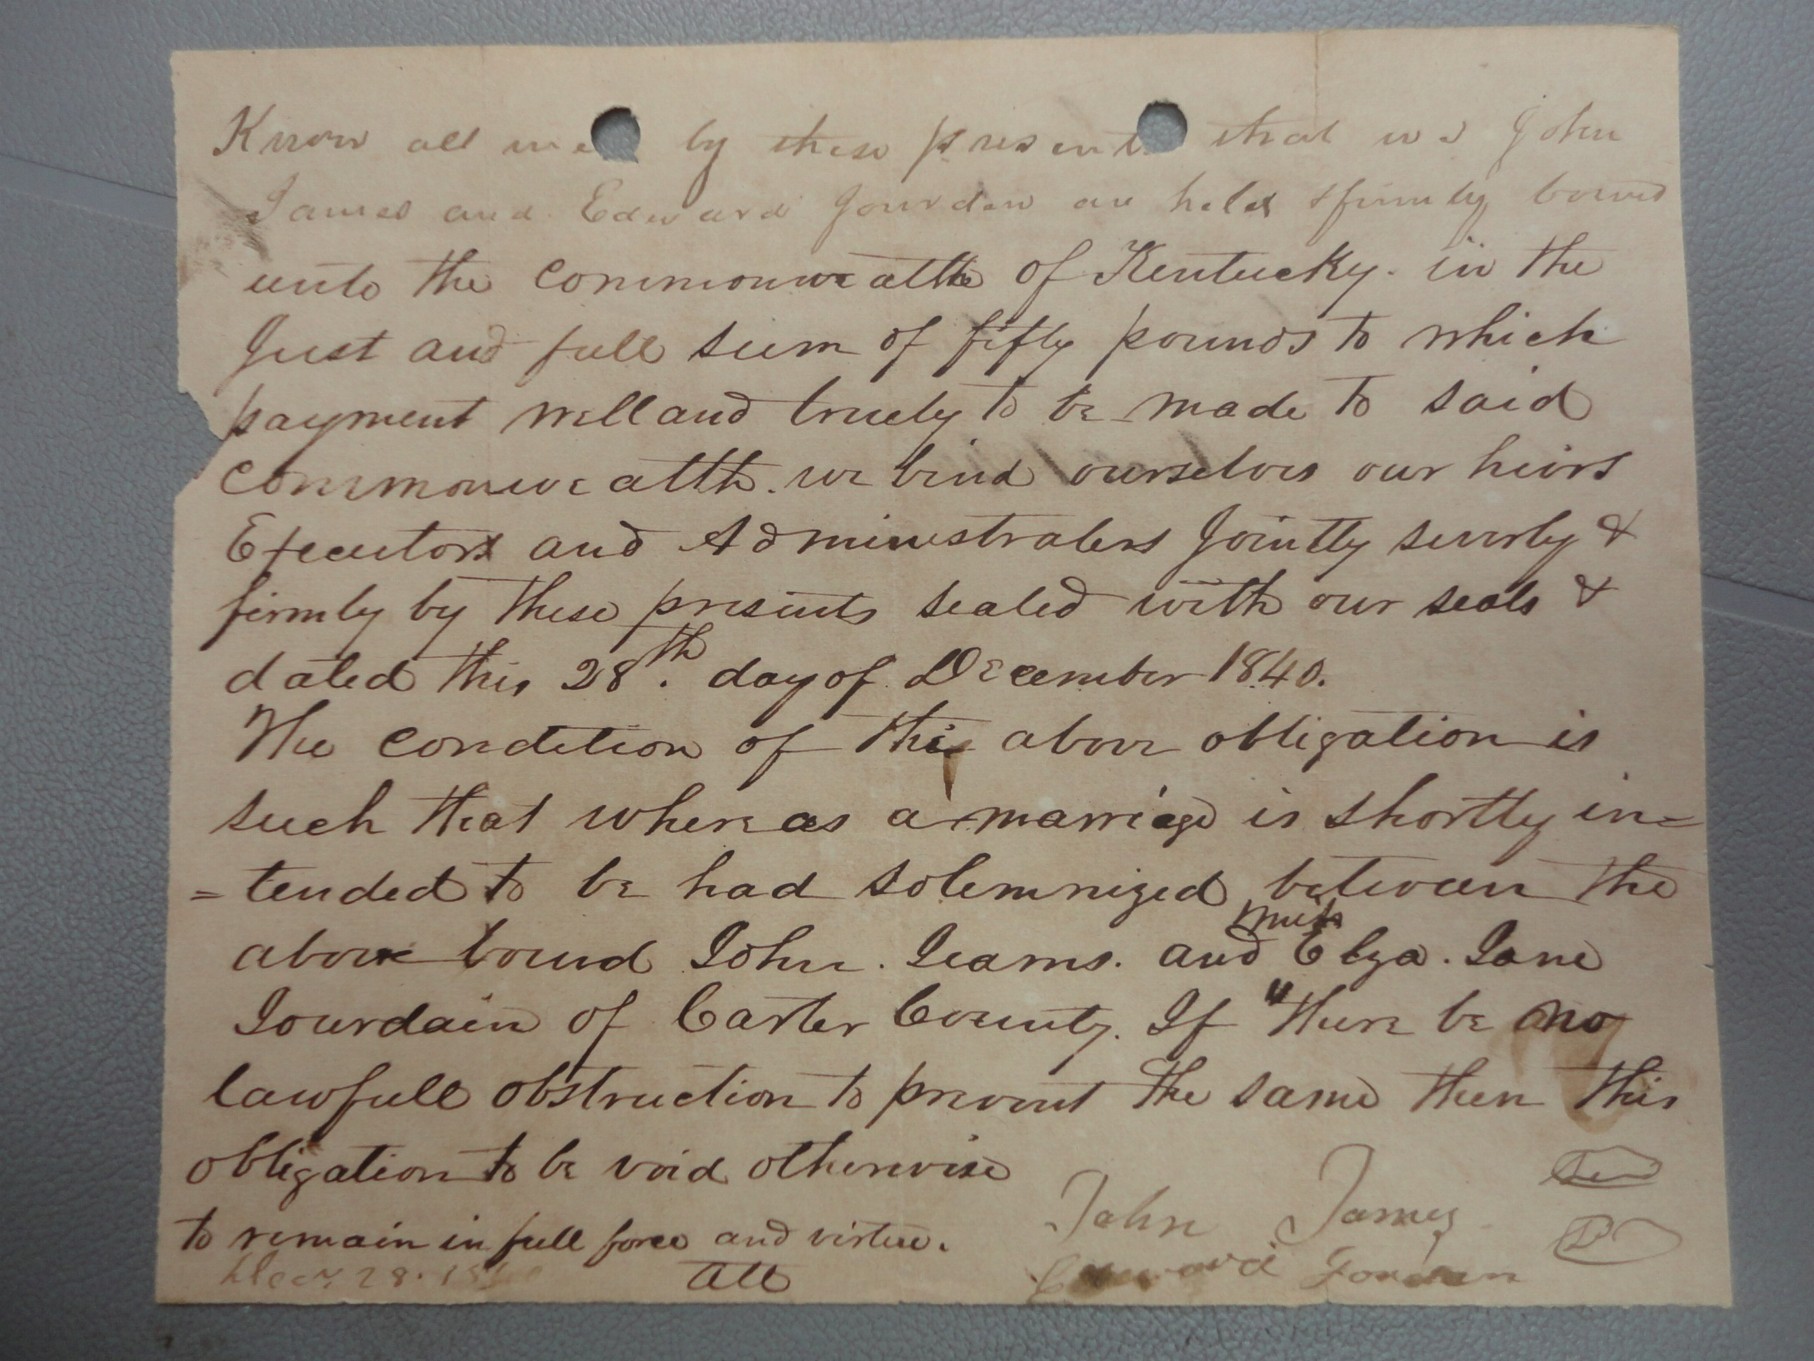 Know all men by these presents that we John
James and Edward Jourden are held & firmly bound
unto the Commonwealth of Kentucky. in the
Just and full sum of fifty pounds to which
payment well and truely to be made to said
Commonwealth. we bind ourselves our heirs
Executors and Administrators Jointly severly &
firmly by these presents sealed with our seals &
dated this 28th. day of December 1840.
The condition of the above obligation is
such that whereas a marriage is shortly in=
=tended to be had solemnized between the
above bound John. Jeams. and Miss Elza. Jane
Jourdain of Carter County. If "there be no
lawfull obstruction to prevent the same then this
obligation to be void otherwise
to remain in full force and virtue.
John James
Edward Jordan
Att
Decr. 28. 18